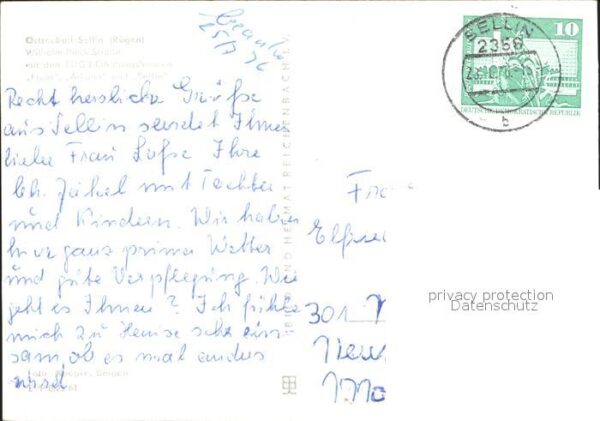 Ostseebad Sellin (Rügen)
Wilhelm-Pieck-Straße
mit den FDGB-Erholungsheimen
Recht herzliche Grüße
aus Sellin sendet Ihnen
liebe Frau Ihre
Ch. Jäkel mit Tochter
und Kindern. Wir haben
hier ganz prima Wetter
und gute Verpflegung. Wie
geht es Ihnen? Ich fühle
mich zu Hause sehr ein
sam, ob es mal anders
wird
BILD UND HEIMAT REICHENBACH I. V.
SELLIN
2356
b
10
DEUTSCHE DEMOKRATISCHE REPUBLIK
301
privacy protection
Datenschutz